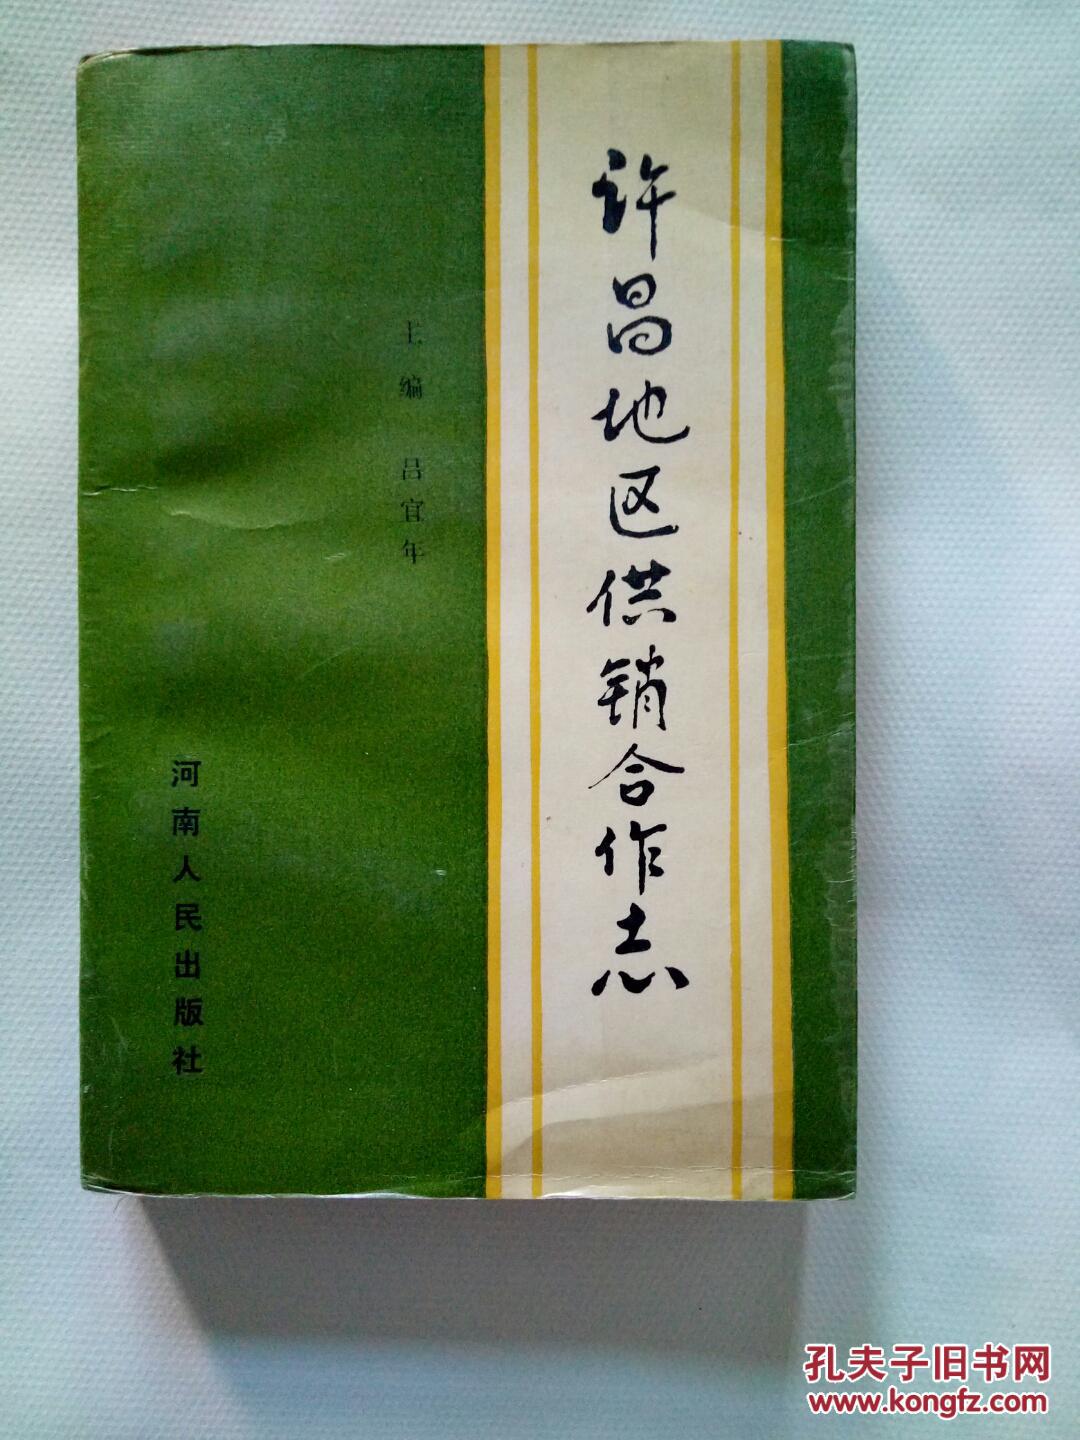 许昌地区供销合作志
主编 吕宜年
河南人民出版社
孔夫子旧书网
www.kongfz.com